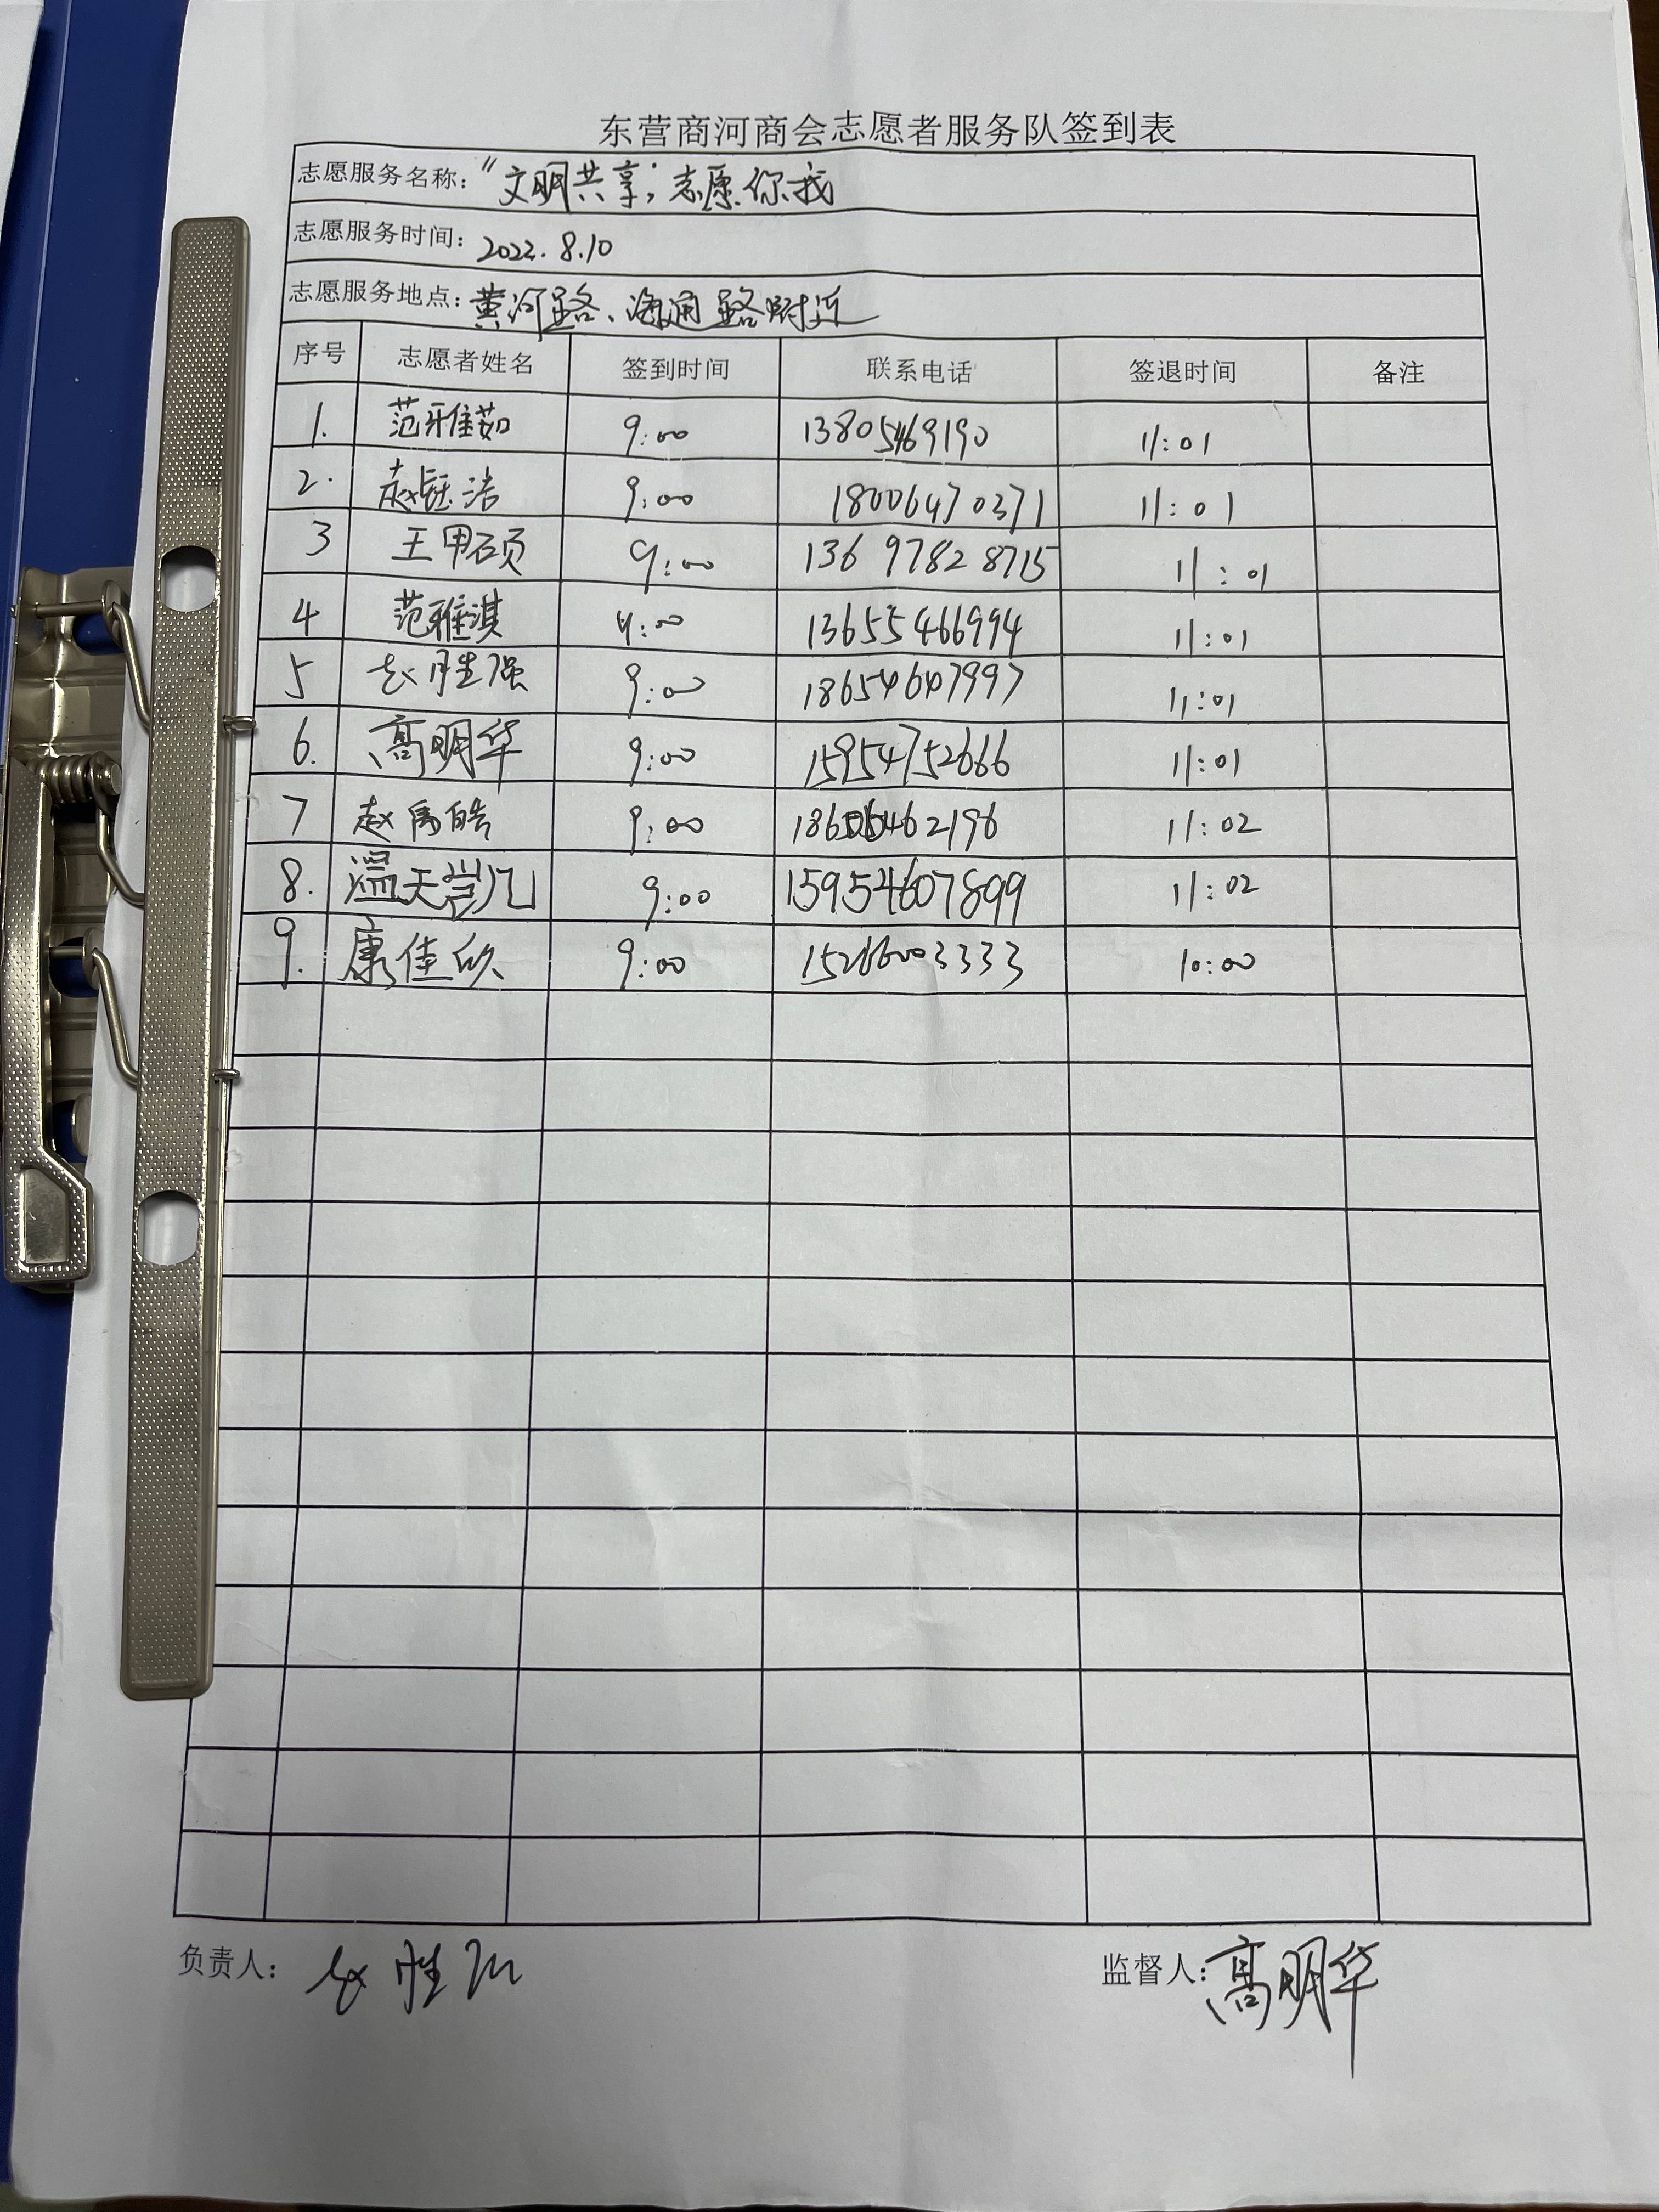 东营商河商会志愿者服务队签到表
志愿服务名称："文明共享"，志愿你我
志愿服务时间：2022.8.10
志愿服务地点：黄河路、海通路附近
序号 志愿者姓名 签到时间 联系电话 签退时间 备注
1. 范雅茹 9:00 13805469190 11:01
2. 赵钰浩 9:00 18006470371 11:01
3 王甲硕 9:00 136 9782 8715 11:01
4 范雅淇 9:00 13655466994 11:01
5 赵胜强 9:00 18654647997 11:01
6. 高明华 9:00 15954752666 11:01
7 赵禹皓 9:00 11:02
8. 温天岂凡 9:00 15954607899 11:02
9. 康佳欣 9:00 15266003333 10:00
负责人：赵胜
监督人：高明华